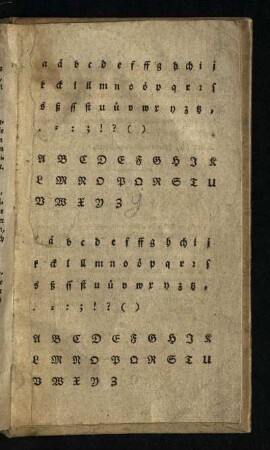 a á b c d e f ff g h ch i j
k ck l ll m n o ó p q r ꝛ ſ
s ß ſſ ſt u ú v w x y z tz ,
. = : ; ! ? ( )
A B C D E F G H I K
L M N O P Q R S T U
V W X Y Z
á b c d e f ff g h ch i j
k ck l ll m n o ó p q r ꝛ ſ
s ß ſſ ſt u ú v w x y z tz ,
. = : ; ! ? ( )
A B C D E F G H I K
L M N O P Q R S T U
V W X Y Z